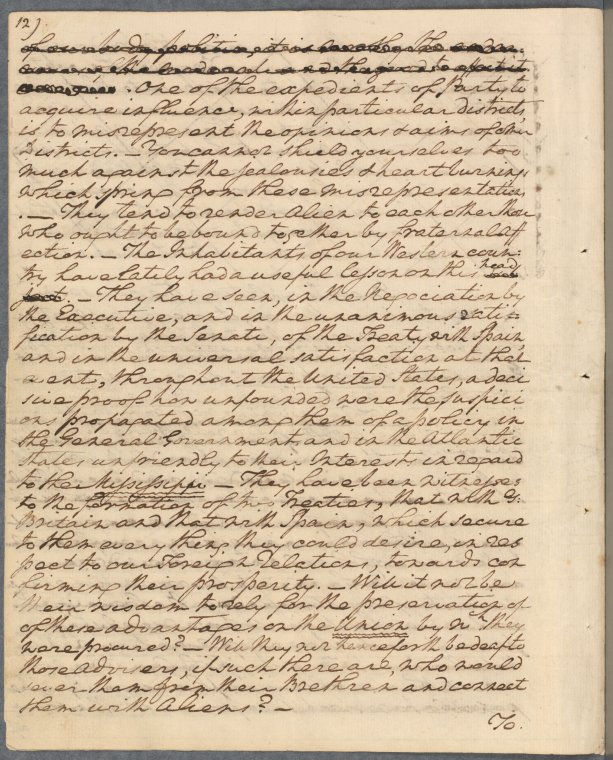 12)
One of the expedients of Party to
acquire influence, within particular districts,
is to misrepresent the opinions & aims of other
Districts. — You cannot shield yourselves too
much against the jealousies & heart burnings
which spring from these misrepresentations
. — They tend to render Alien to each other those
who ought to be bound together by fraternal aff
ection. — The Inhabitants of our Western coun-
try have lately had a useful lesson on this head
. — They have seen, in the Negociation by
the Executive, and in the unanimous rati-
fication by the Senate, of the Treaty with Spain,
and in the universal satisfaction at that
event, throughout the United States, a deci
sive proof how unfounded were the suspici
ons propagated among them of a policy in
the General Government and in the Atlantic
States unfriendly to their Interests in regard
to the Mississippi — They have been witnesses
to the formation of two Treaties, that with G:
Britain and that with Spain, which secure
to them every thing they could desire, in res
pect to our Foreign Relations, towards con
firming their prosperity. — Will it not be
their wisdom to rely for the preservation of
of these advantages on the Union by wch. they
were procured? — Will they not henceforth be deaf to
those advisers, if such there are, who would
sever them from their Brethren and connect
them with Aliens? —
To.